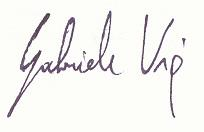 Gabriele Vig